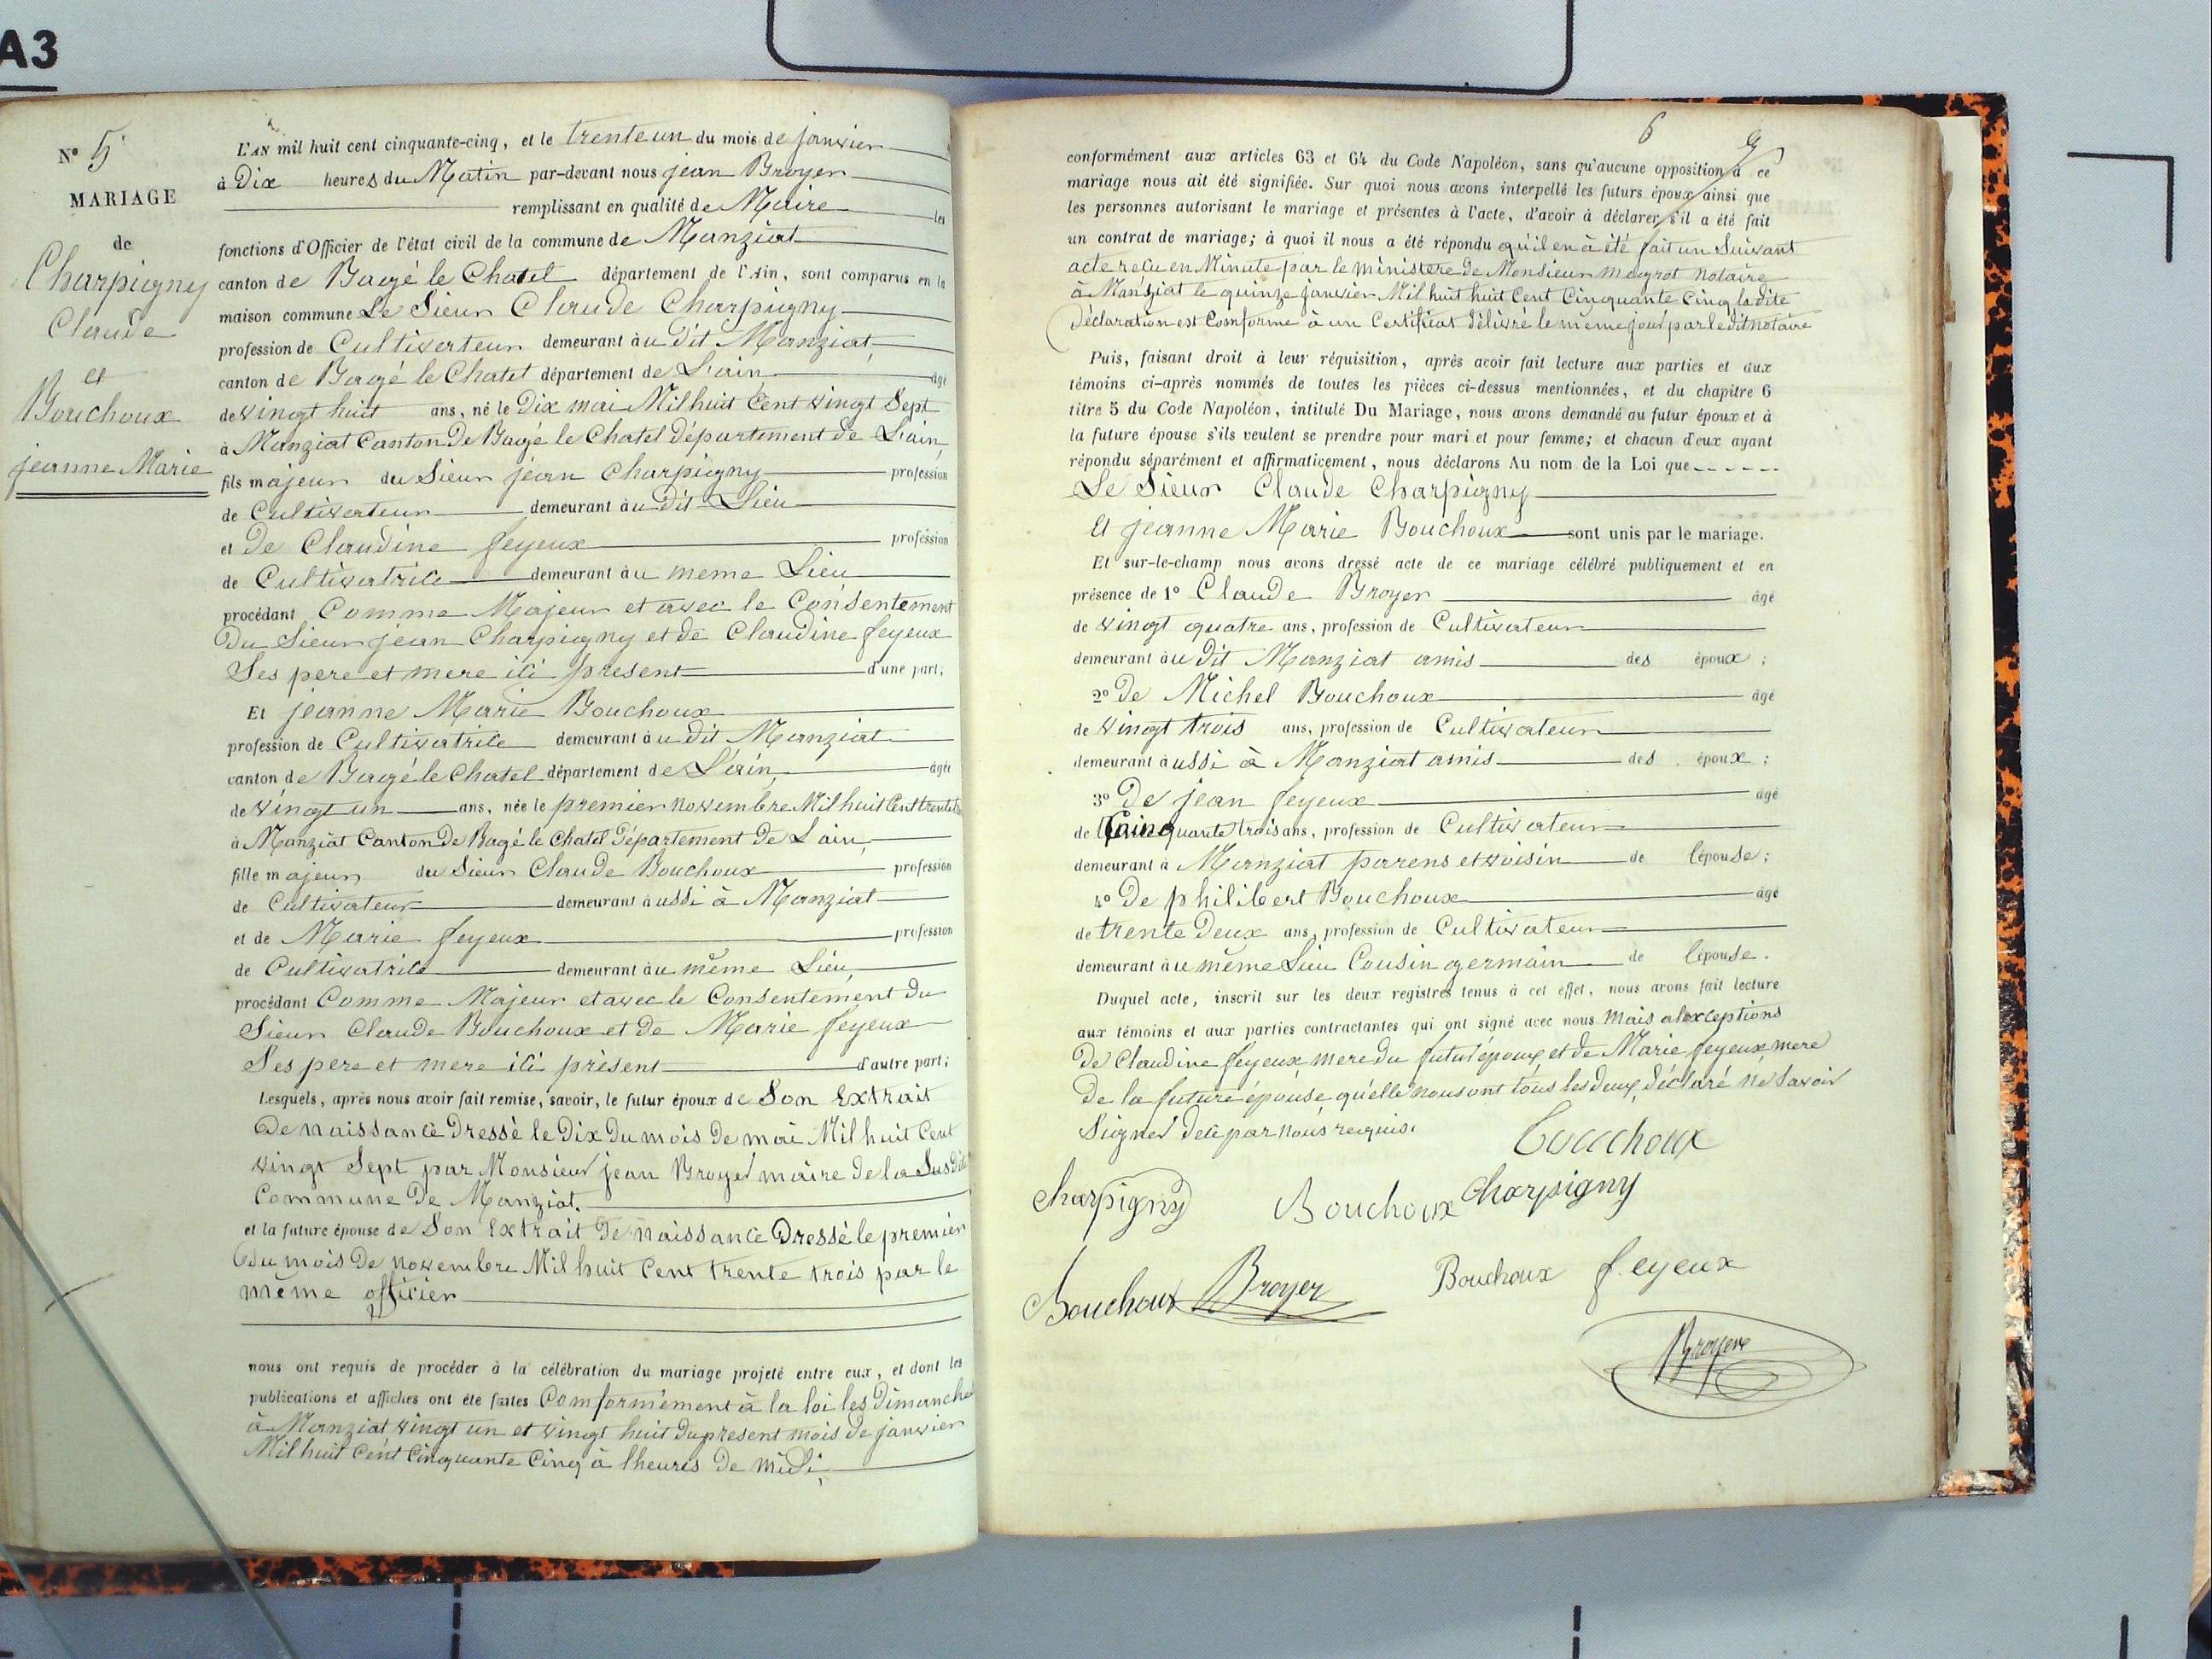 A3
N° 5
MARIAGE
de
Charpigny
Claude
et
Bouchoux
jeanne Marie
L'AN mil huit cent cinquante-cinq, et le trente un du mois de janvier
à Dix heures du Matin par-devant nous jean Broyer
remplissant en qualité de Maire les
fonctions d'Officier de l'état civil de la commune de Manziat
canton de Bagé le Chatel département de l'Ain, sont comparus en la
maison commune Le Sieur Claude Charpigny
profession de Cultivateur demeurant au dit Manziat
canton de Bagé le Chatel département de L'ain âgé
de vingt huit ans, né le Dix mai Mil huit Cent vingt Sept
à Manziat Canton De Bagé le Chatel Département de L'ain
fils majeur du Sieur jean Charpigny profession
de Cultivateur demeurant au dit Lieu
et De Claudine feyeux profession
de Cultivatrice demeurant au meme Lieu
procédant Comme Majeur et avec le Consentement
Du Sieur jean Charpigny et de Claudine feyeux
Ses pere et mere ici present d'une part;
Et jeanne Marie Bouchoux
profession de Cultivatrice demeurant au dit Manziat
canton de Bagé le Chatel département de L'ain âgée
de vingt un ans, née le premier novembre Mil huit Cent trente trois
à Manziat Canton De Bagé le Chatel Département De L'ain,
fille majeur du Sieur Claude Bouchoux profession
de Cultivateur demeurant aussi à Manziat
et de Marie feyeux profession
de Cultivatrice demeurant au même Lieu,
procédant Comme Majeur et avec le Consentement du
Sieur Claude Bouchoux et de Marie feyeux
Ses pere et mere ici présent d'autre part;
Lesquels, après nous avoir fait remise, savoir, le futur époux de Son Extrait
De naissance Dressé le Dix Du mois De mai Mil huit Cent
vingt Sept par Monsieur jean Broyer maire de la Sus Dite
Commune De Manziat.
et la future épouse de Son Extrait De naissance Dressé le premier
Du mois De novembre Mil huit Cent trente trois par le
même officier
nous ont requis de procéder à la célébration du mariage projeté entre eux, et dont les
publications et affiches ont été faites Comformement à la loi les Dimanches
à Manziat vingt un et vingt huit du present mois de janvier
Mil huit Cent Cinquante Cinq à lheures De midi,
6
conformément aux articles 63 et 64 du Code Napoléon, sans qu'aucune opposition à ce
mariage nous ait été signifiée. Sur quoi nous avons interpellé les futurs époux ainsi que
les personnes autorisant le mariage et présentes à l'acte, d'avoir à déclarer s'il a été fait
un contrat de mariage; à quoi il nous a été répondu qu'il en à été fait un Suivant
acte reçu en Minute par le ministere de Monsieur magrot notaire
à Manziat le quinze janvier Mil huit huit Cent Cinquante Cinq la dite
Déclaration est Comforme à un Certificat délivré le meme jour par le dit notaire
Puis, faisant droit à leur réquisition, après avoir fait lecture aux parties et aux
témoins ci-après nommés de toutes les pièces ci-dessus mentionnées, et du chapitre 6
titre 5 du Code Napoléon, intitulé Du Mariage, nous avons demandé au futur époux et à
la future épouse s'ils veulent se prendre pour mari et pour femme; et chacun d'eux ayant
répondu séparément et affirmativement, nous déclarons Au nom de la Loi que
Le Sieur Claude Charpigny
Et jeanne Marie Bouchoux sont unis par le mariage.
Et sur-le-champ nous avons dressé acte de ce mariage célébré publiquement et en
présence de 1° Claude Broyer âgé
de vingt quatre ans, profession de Cultivateur
demeurant au dit Manziat amis des époux;
2° De Michel Bouchoux âgé
de vingt trois ans, profession de Cultivateur
demeurant aussi à Manziat amis des époux;
3° De jean feyeux âgé
de Cinquante trois ans, profession de Cultivateur
demeurant à Manziat parens et voisin de lépouse;
4° De philibert Bouchoux âgé
de trente Deux ans, profession de Cultivateur
demeurant au même Lieu Cousin germain de lépouse.
Duquel acte, inscrit sur les deux registres tenus à cet effet, nous avons fait lecture
aux témoins et aux parties contractantes qui ont signé avec nous mais alexceptions
De Claudine feyeux mere du futur époux et de Marie feyeux mere
De la future épouse quélle nous ont tous les deux déclaré ne Savoir
Signer dece par nous requis.
Bouchoux
Charpigny Bouchoux Charpigny
Bouchoux Broyer Bouchoux feyeux
Broyer